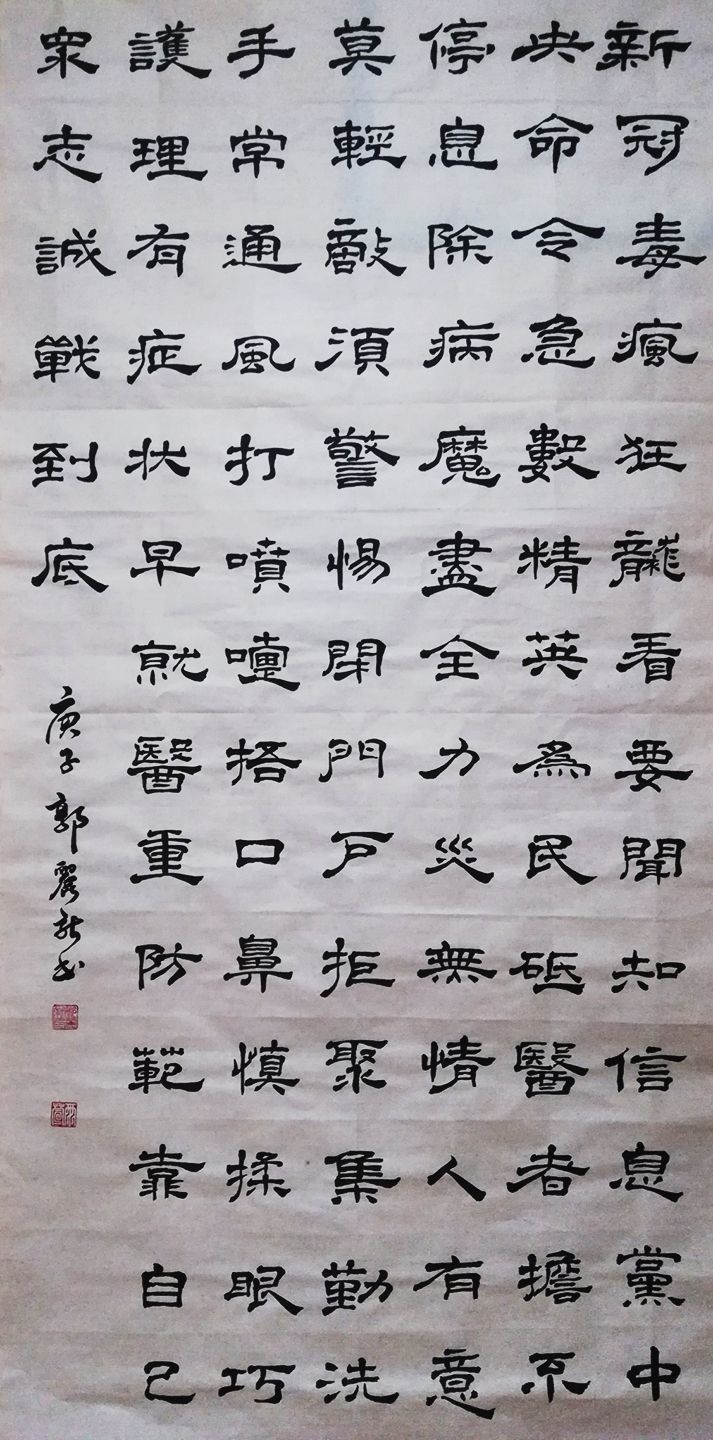 新冠毒瘋狂龍看要聞知信息黨中
央命令急數精英為民砥醫者擔不
停息除病魔盡全力災無情人有意
莫輕敵須警惕閉門戶拒聚集勤洗
手常通風打噴嚏捂口鼻慎揉眼巧
護理有症状早就醫重防範靠自己
眾志誠戰到底
庚子郭麗新书